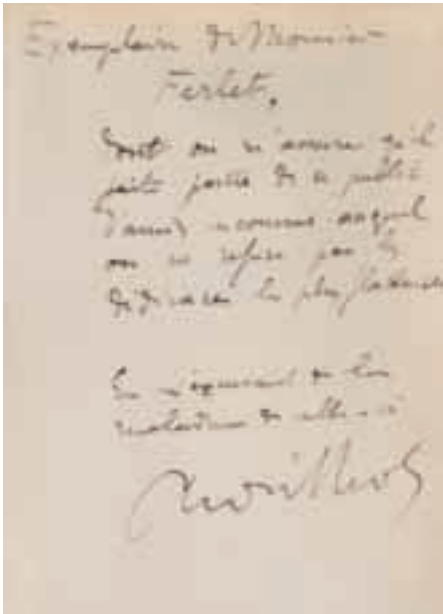 Exemplaire de Monsieur
Ferlet,
Dont on m'assure qu'il
fait partie de ce public
d'amis inconnus auquel
on ne refuse pas les
dédicaces les plus flatteuses
En s'excusant de la
de celle-ci